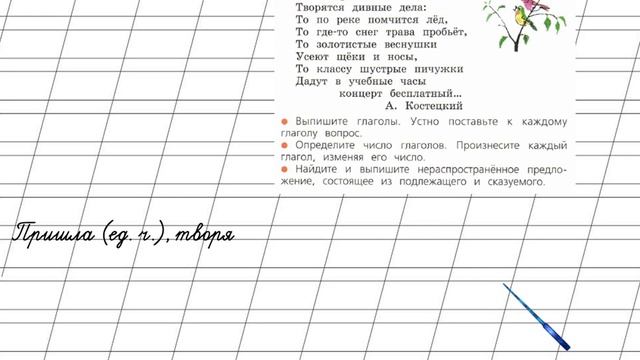 Творятся дивные дела:
То по реке помчится лёд,
То где-то снег трава пробьёт,
То золотистые веснушки
Усеют щёки и носы,
То классу шустрые пичужки
Дадут в учебные часы
концерт бесплатный...
А. Костецкий
● Выпишите глаголы. Устно поставьте к каждому
глаголу вопрос.
● Определите число глаголов. Произнесите каждый
глагол, изменяя его число.
● Найдите и выпишите нераспространённое предло-
жение, состоящее из подлежащего и сказуемого.
Пришла (ед. ч.), творя